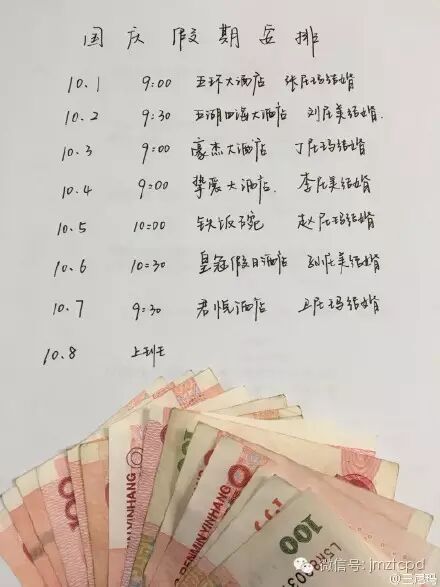 国庆假期安排
10.1 9:00 五环大酒店 张尼玛结婚
10.2 9:30 五湖四海大酒店 刘尼美结婚.
10.3 9:00 豪杰大酒店 丁尼玛结婚
10.4 9:00 挚爱大酒店. 李尼美结婚
10.5 10:00 铁饭碗 赵尼玛结婚
10.6 10:30 皇冠假日酒店 孙尼美结婚
10.7 9:30 君悦酒店 王尼玛结婚
10.8 上班
100
RENMIN YINHANG
RENMIN YINHANG
100
微信号: jmzfcpd
@王尼玛